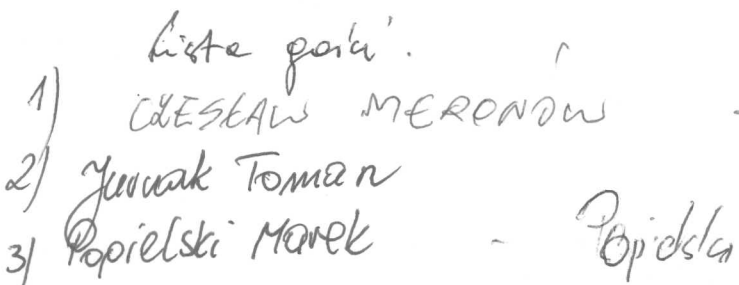 Lista gości.
1) CZESŁAW MERONÓW
2) Jurczak Toman
3) Popielski Marek - Popielski